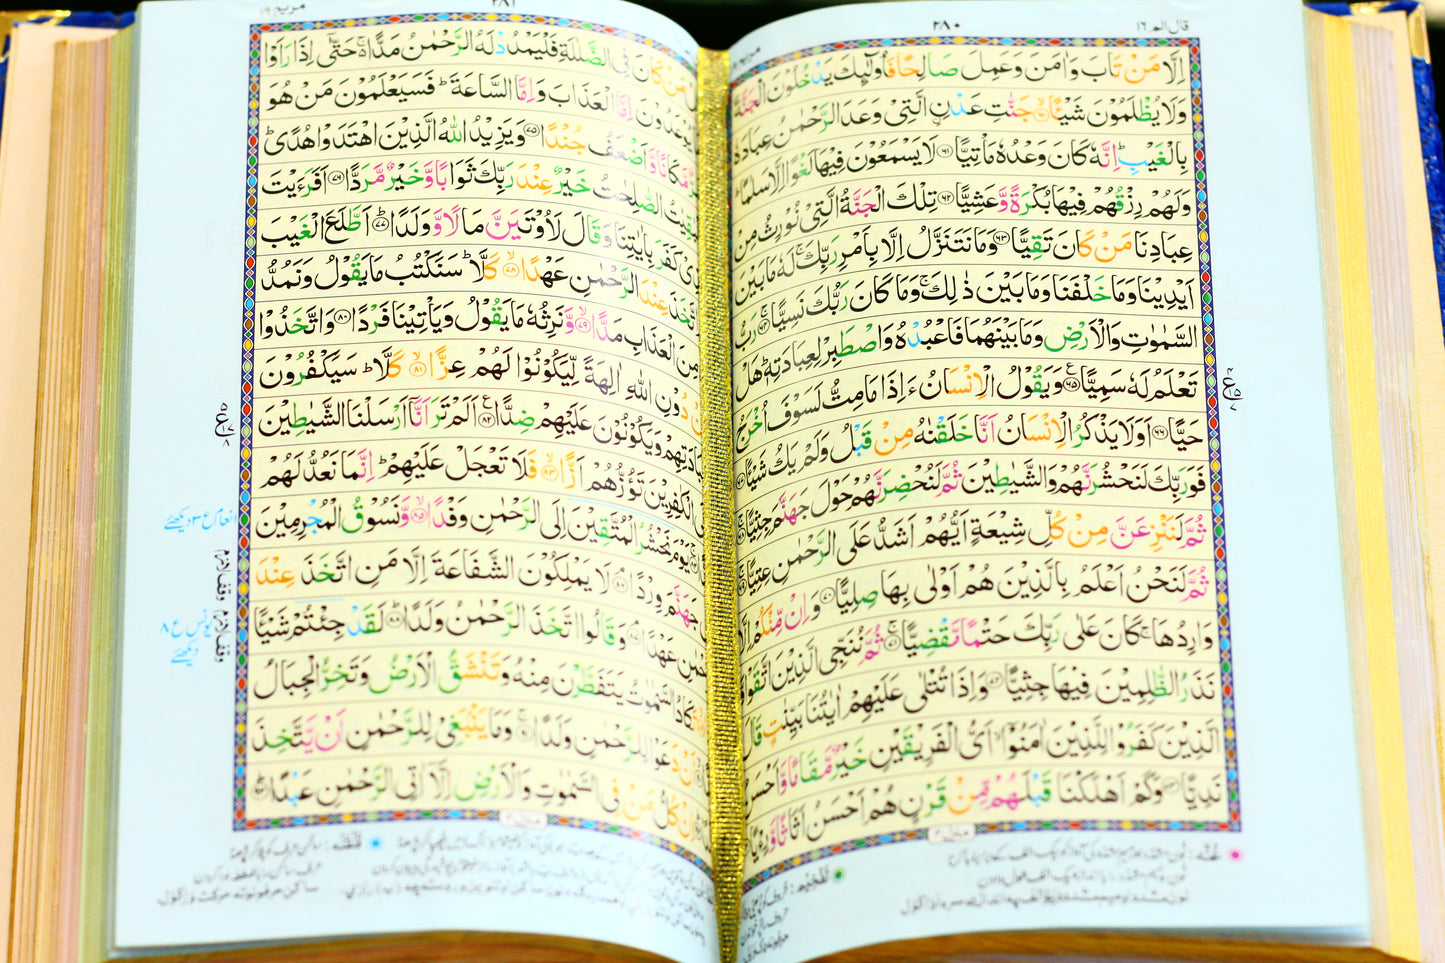 قال الم ١٦
٢٨٠
اِلَّا مَنْ تَابَ وَاٰمَنَ وَعَمِلَ صَالِحًا فَاُولٰٓئِكَ يَدْخُلُوْنَ الْجَنَّةَ
وَلَا يُظْلَمُوْنَ شَيْـًٔا ۙ﴿۶۰﴾ جَنّٰتِ عَدْنِ ۣالَّتِيْ وَعَدَ الرَّحْمٰنُ عِبَادَهٗ
بِالْغَيْبِ ؕ اِنَّهٗ كَانَ وَعْدُهٗ مَاْتِيًّا ﴿۶۱﴾ لَا يَسْمَعُوْنَ فِيْهَا لَغْوًا اِلَّا سَلٰمًا ؕ
وَلَهُمْ رِزْقُهُمْ فِيْهَا بُكْرَةً وَّعَشِيًّا ﴿۶۲﴾ تِلْكَ الْجَنَّةُ الَّتِيْ نُوْرِثُ مِنْ
عِبَادِنَا مَنْ كَانَ تَقِيًّا ﴿۶۳﴾ وَمَا نَتَنَزَّلُ اِلَّا بِاَمْرِ رَبِّكَ ۚ لَهٗ مَا بَيْنَ
اَيْدِيْنَا وَمَا خَلْفَنَا وَمَا بَيْنَ ذٰلِكَ ۚ وَمَا كَانَ رَبُّكَ نَسِيًّا ۚ﴿۶۴﴾ رَبُّ
السَّمٰوٰتِ وَالْاَرْضِ وَمَا بَيْنَهُمَا فَاعْبُدْهُ وَاصْطَبِرْ لِعِبَادَتِهٖ ؕ هَلْ
تَعْلَمُ لَهٗ سَمِيًّا ﴿۶۵﴾ وَيَقُوْلُ الْاِنْسَانُ ءَاِذَا مَا مِتُّ لَسَوْفَ اُخْرَجُ
حَيًّا ﴿۶۶﴾ اَوَلَا يَذْكُرُ الْاِنْسَانُ اَنَّا خَلَقْنٰهُ مِنْ قَبْلُ وَلَمْ يَكُ شَيْـًٔا ﴿۶۷﴾
فَوَرَبِّكَ لَنَحْشُرَنَّهُمْ وَالشَّيٰطِيْنَ ثُمَّ لَنُحْضِرَنَّهُمْ حَوْلَ جَهَنَّمَ جِثِيًّا ۚ﴿۶۸﴾
ثُمَّ لَنَنْزِعَنَّ مِنْ كُلِّ شِيْعَةٍ اَيُّهُمْ اَشَدُّ عَلَى الرَّحْمٰنِ عِتِيًّا ۚ﴿۶۹﴾
ثُمَّ لَنَحْنُ اَعْلَمُ بِالَّذِيْنَ هُمْ اَوْلٰى بِهَا صِلِيًّا ﴿۷۰﴾ وَاِنْ مِّنْكُمْ اِلَّا
وَارِدُهَا ۚ كَانَ عَلٰى رَبِّكَ حَتْمًا مَّقْضِيًّا ۚ﴿۷۱﴾ ثُمَّ نُنَجِّي الَّذِيْنَ اتَّقَوْا
نَذَرُ الظّٰلِمِيْنَ فِيْهَا جِثِيًّا ﴿۷۲﴾ وَاِذَا تُتْلٰى عَلَيْهِمْ اٰيٰتُنَا بَيِّنٰتٍ قَالَ
الَّذِيْنَ كَفَرُوْا لِلَّذِيْنَ اٰمَنُوْۤا ۙ اَيُّ الْفَرِيْقَيْنِ خَيْرٌ مَّقَامًا وَّاَحْسَنُ
نَدِيًّا ﴿۷۳﴾ وَكَمْ اَهْلَكْنَا قَبْلَهُمْ مِّنْ قَرْنٍ هُمْ اَحْسَنُ اَثَاثًا وَّرِءْيًا
منزل ٤
مريم ١٩
٢٨١
مَنْ كَانَ فِي الضَّلٰلَةِ فَلْيَمْدُدْ لَهُ الرَّحْمٰنُ مَدًّا ۚ حَتّٰۤى اِذَا رَاَوْا
يُوْعَدُوْنَ اِمَّا الْعَذَابَ وَاِمَّا السَّاعَةَ ؕ فَسَيَعْلَمُوْنَ مَنْ هُوَ
مَّكَانًا وَّاَضْعَفُ جُنْدًا ﴿۷۵﴾ وَيَزِيْدُ اللّٰهُ الَّذِيْنَ اهْتَدَوْا هُدًى ؕ
الصّٰلِحٰتُ خَيْرٌ عِنْدَ رَبِّكَ ثَوَابًا وَّخَيْرٌ مَّرَدًّا ﴿۷۶﴾ اَفَرَءَيْتَ
كَفَرَ بِاٰيٰتِنَا وَقَالَ لَاُوْتَيَنَّ مَالًا وَّوَلَدًا ؕ﴿۷۷﴾ اَطَّلَعَ الْغَيْبَ
اتَّخَذَ عِنْدَ الرَّحْمٰنِ عَهْدًا ۙ﴿۷۸﴾ كَلَّا ؕ سَنَكْتُبُ مَا يَقُوْلُ وَنَمُدُّ
مِنَ الْعَذَابِ مَدًّا ۙ﴿۷۹﴾ وَّنَرِثُهٗ مَا يَقُوْلُ وَيَاْتِيْنَا فَرْدًا ﴿۸۰﴾ وَاتَّخَذُوْا
دُوْنِ اللّٰهِ اٰلِهَةً لِّيَكُوْنُوْا لَهُمْ عِزًّا ۙ﴿۸۱﴾ كَلَّا ؕ سَيَكْفُرُوْنَ
وَيَكُوْنُوْنَ عَلَيْهِمْ ضِدًّا ﴿۸۲﴾ اَلَمْ تَرَ اَنَّاۤ اَرْسَلْنَا الشَّيٰطِيْنَ
الْكٰفِرِيْنَ تَؤُزُّهُمْ اَزًّا ۙ﴿۸۳﴾ فَلَا تَعْجَلْ عَلَيْهِمْ ؕ اِنَّمَا نَعُدُّ لَهُمْ
يَوْمَ نَحْشُرُ الْمُتَّقِيْنَ اِلَى الرَّحْمٰنِ وَفْدًا ۙ﴿۸۵﴾ وَّنَسُوْقُ الْمُجْرِمِيْنَ
جَهَنَّمَ وِرْدًا ۘ﴿۸۶﴾ لَا يَمْلِكُوْنَ الشَّفَاعَةَ اِلَّا مَنِ اتَّخَذَ عِنْدَ
عَهْدًا ۘ﴿۸۷﴾ وَقَالُوا اتَّخَذَ الرَّحْمٰنُ وَلَدًا ؕ﴿۸۸﴾ لَقَدْ جِئْتُمْ شَيْـًٔا
السَّمٰوٰتُ يَتَفَطَّرْنَ مِنْهُ وَتَنْشَقُّ الْاَرْضُ وَتَخِرُّ الْجِبَالُ
دَعَوْا لِلرَّحْمٰنِ وَلَدًا ۚ﴿۹۱﴾ وَمَا يَنْۢبَغِيْ لِلرَّحْمٰنِ اَنْ يَّتَّخِذَ
كُلُّ مَنْ فِي السَّمٰوٰتِ وَالْاَرْضِ اِلَّاۤ اٰتِي الرَّحْمٰنِ عَبْدًا ؕ﴿۹۳﴾
منزل ٤
انعام ع ٣ دیکھئے
وقف لازم
وقف لازم
یونس ع ٨
دیکھئے